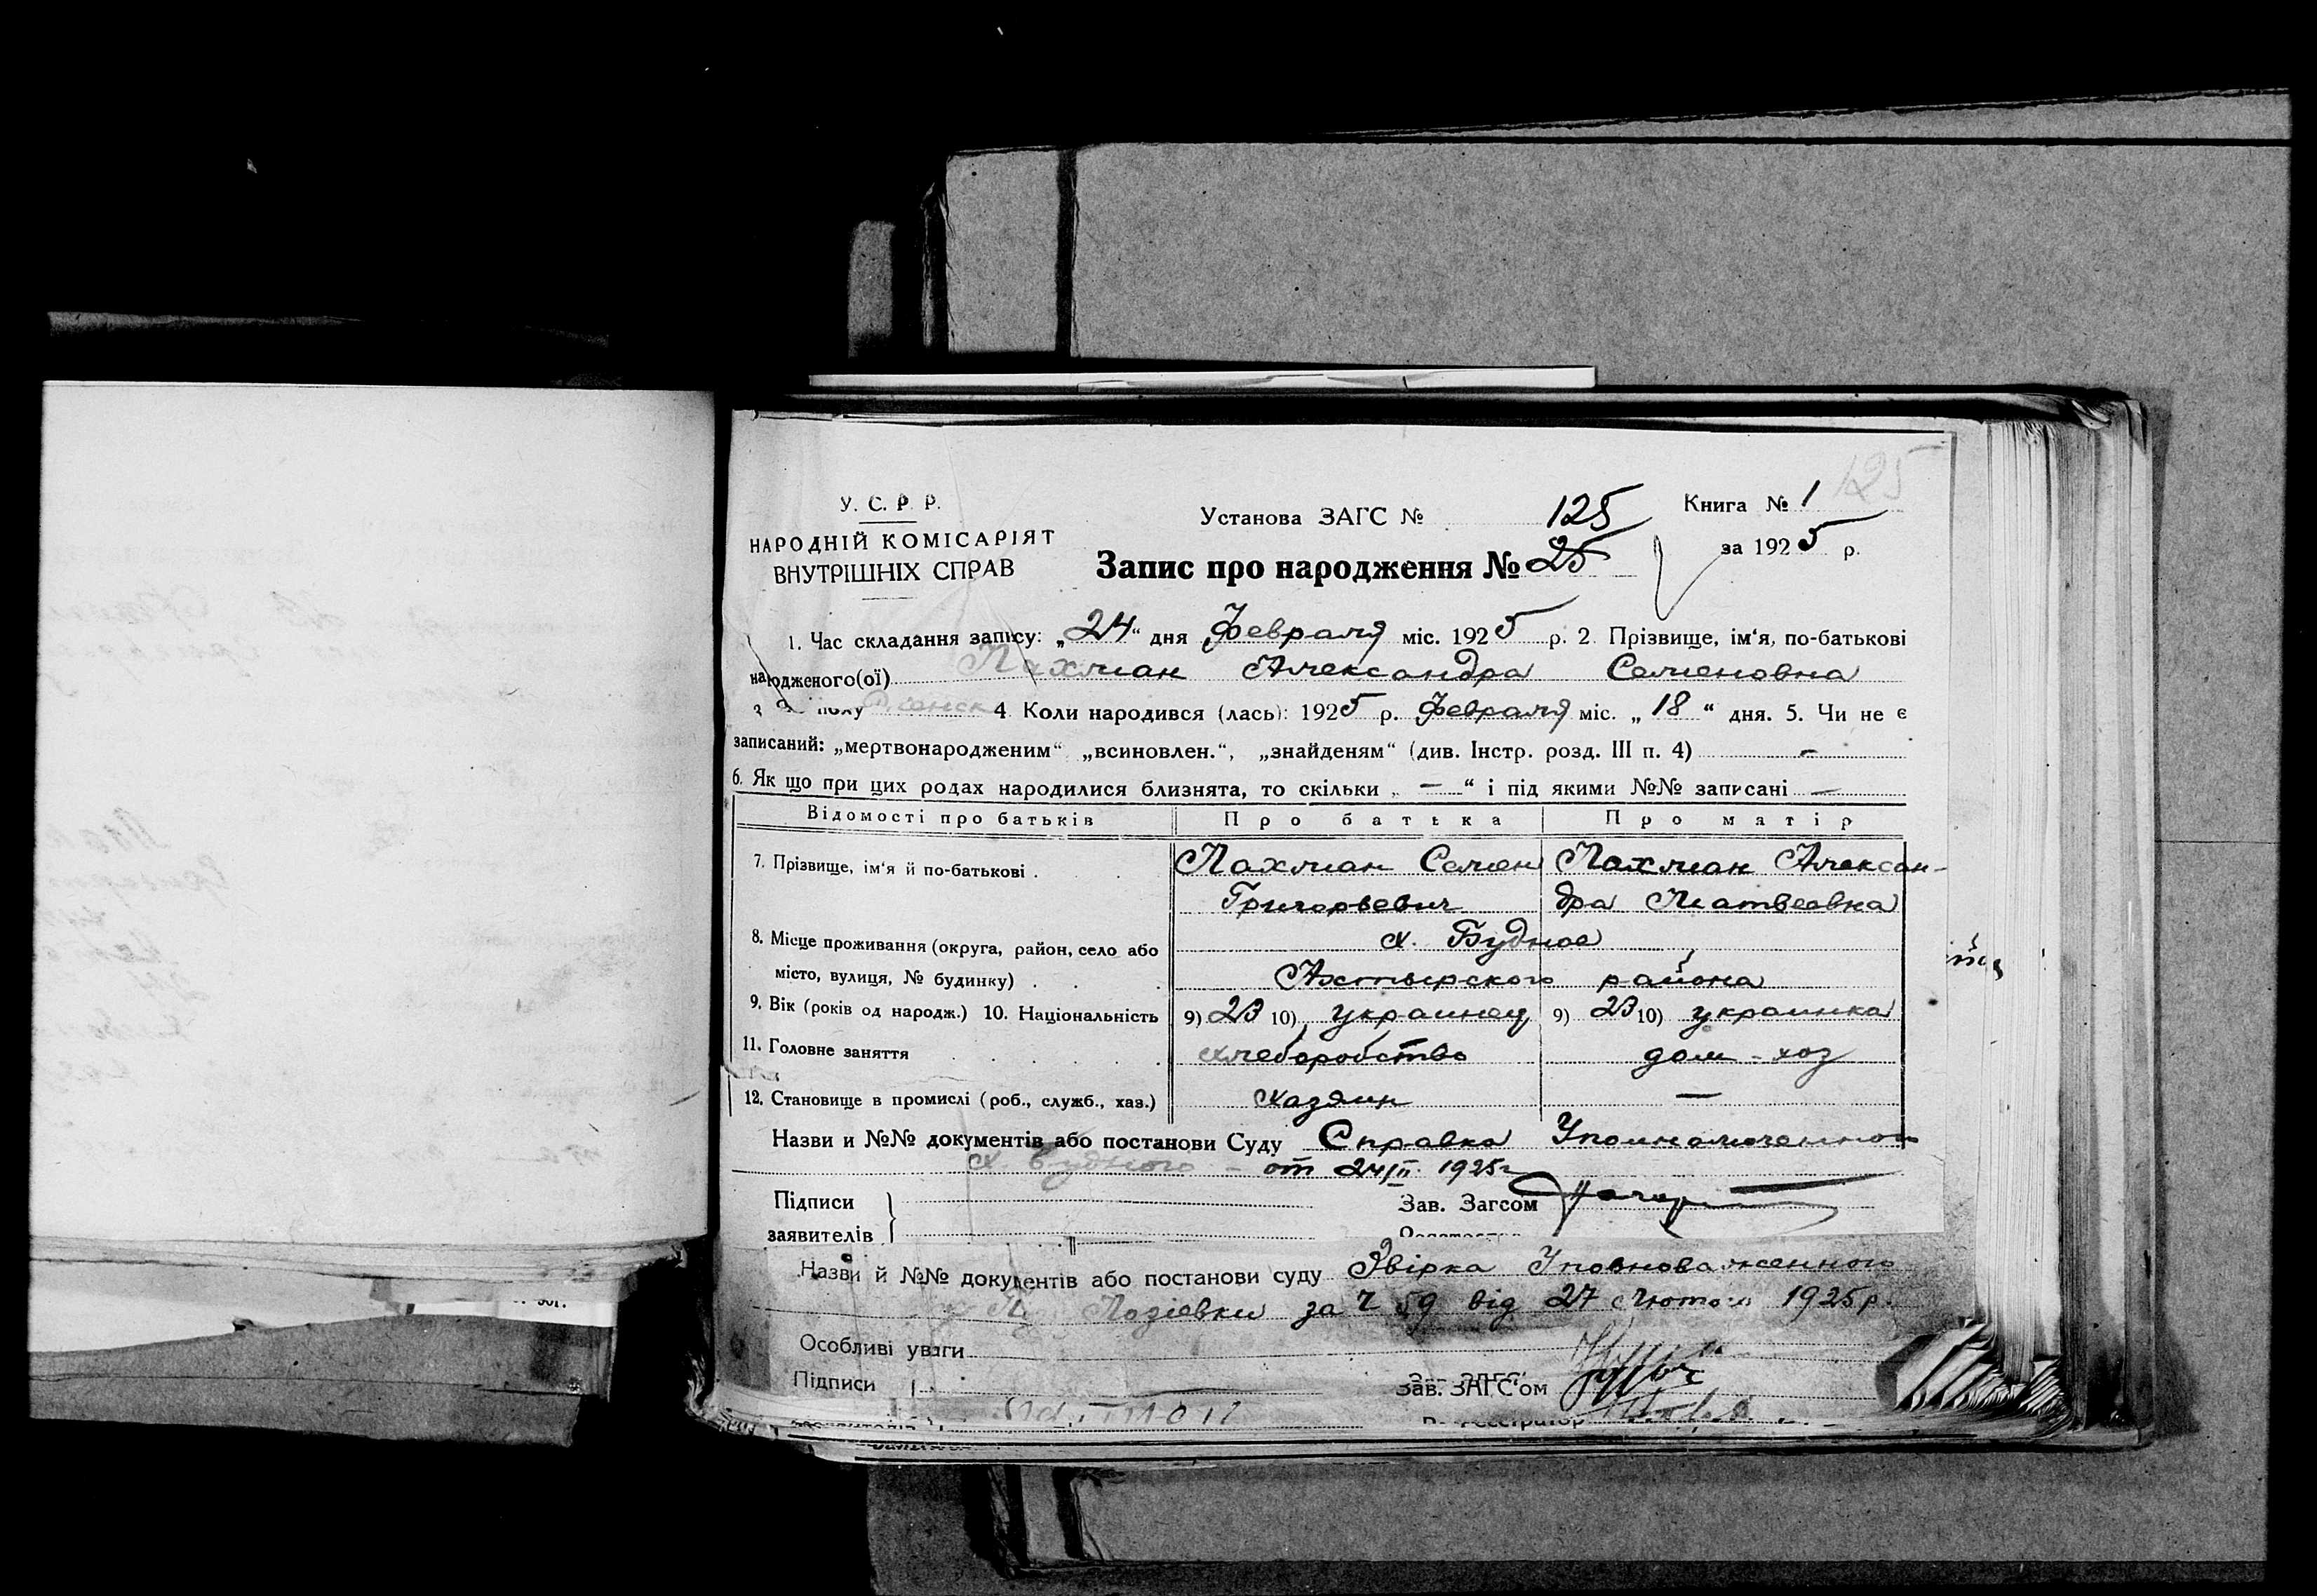 125
У. С. Р. Р.
НАРОДНІЙ КОМІСАРІЯТ
ВНУТРІШНІХ СПРАВ
Установа ЗАГС № 125
Книга № 1
за 1925 р.
Запис про народження № 25
1. Час складання запису: „24“ дня Февраля міс. 1925 р. 2. Прізвище, ім‘я, по-батькові
народженого(ої) Пахман Александра Семеновна
3 полу женск 4. Коли народився (лась): 1925 р. Февраля міс. „18“ дня. 5. Чи не є
записаний: „мертвонародженим“ „всиновлен.“, „знайденям“ (див. Інстр. розд. III п. 4) —
6. Як що при цих родах народилися близнята, то скільки „ — “ і під якими №№ записані —
Відомості про батьків Про батька Про матір
7. Прізвище, ім‘я й по-батькові . Пахман Семен Пахман Алексан-
Григорьевич дра Матвеевна
8. Місце проживання (округа, район, село або х. Будное
місто, вулиця, № будинку) . Ахтырского района
9. Вік (років од народж.) 10. Національність 9) 23 10) украинец 9) 23 10) украинка
11. Головне заняття хлеборобство дом-хоз
12. Становище в промислі (роб., служб., хаз.) хазяин —
Назви и №№ документів або постанови Суду Справка Упоинамоченного
х. Будного - от 24/II 1925г
Підписи
заявителів
Зав. Загсом
Назви й №№ документів або постанови суду Звірка Уповноваженного
Лозіевки за Ч 59 від 27 Лютого 1925 р.
Особливі уваги
Підписи
Зав. ЗАГС‘ом